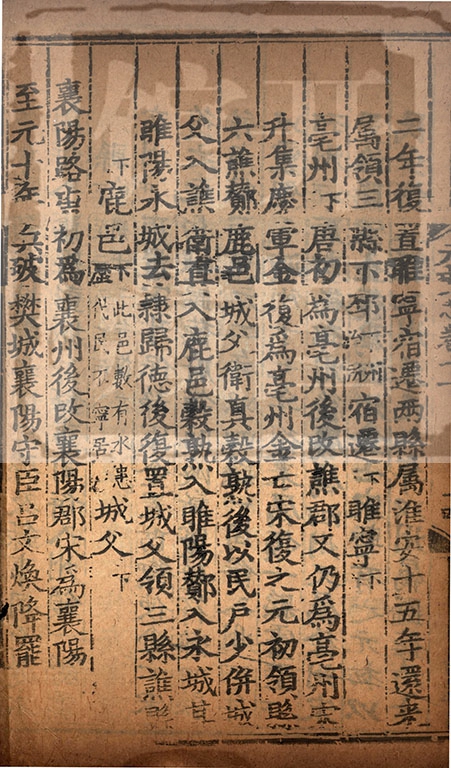 二年復置睢寧宿遷兩縣屬淮安十五年還來
屬領三縣下邳下州治所宿遷下睢寧下
亳州下唐初為亳州後改譙郡又仍為亳州宋
升集慶軍金復為亳州金亡宋復之元初領縣
六譙酇鹿邑城父衛真榖熟後以民戶少併城
父入譙衛真入鹿邑榖熟入睢陽酇入永城其
睢陽永城去隷歸德後復置城父領三縣譙縣
下鹿邑下此邑數有水患歷代民不寧居城父下
襄陽路唐初為襄州後改襄陽郡宋為襄陽
至元十年兵破樊城襄陽守臣呂文煥降罷